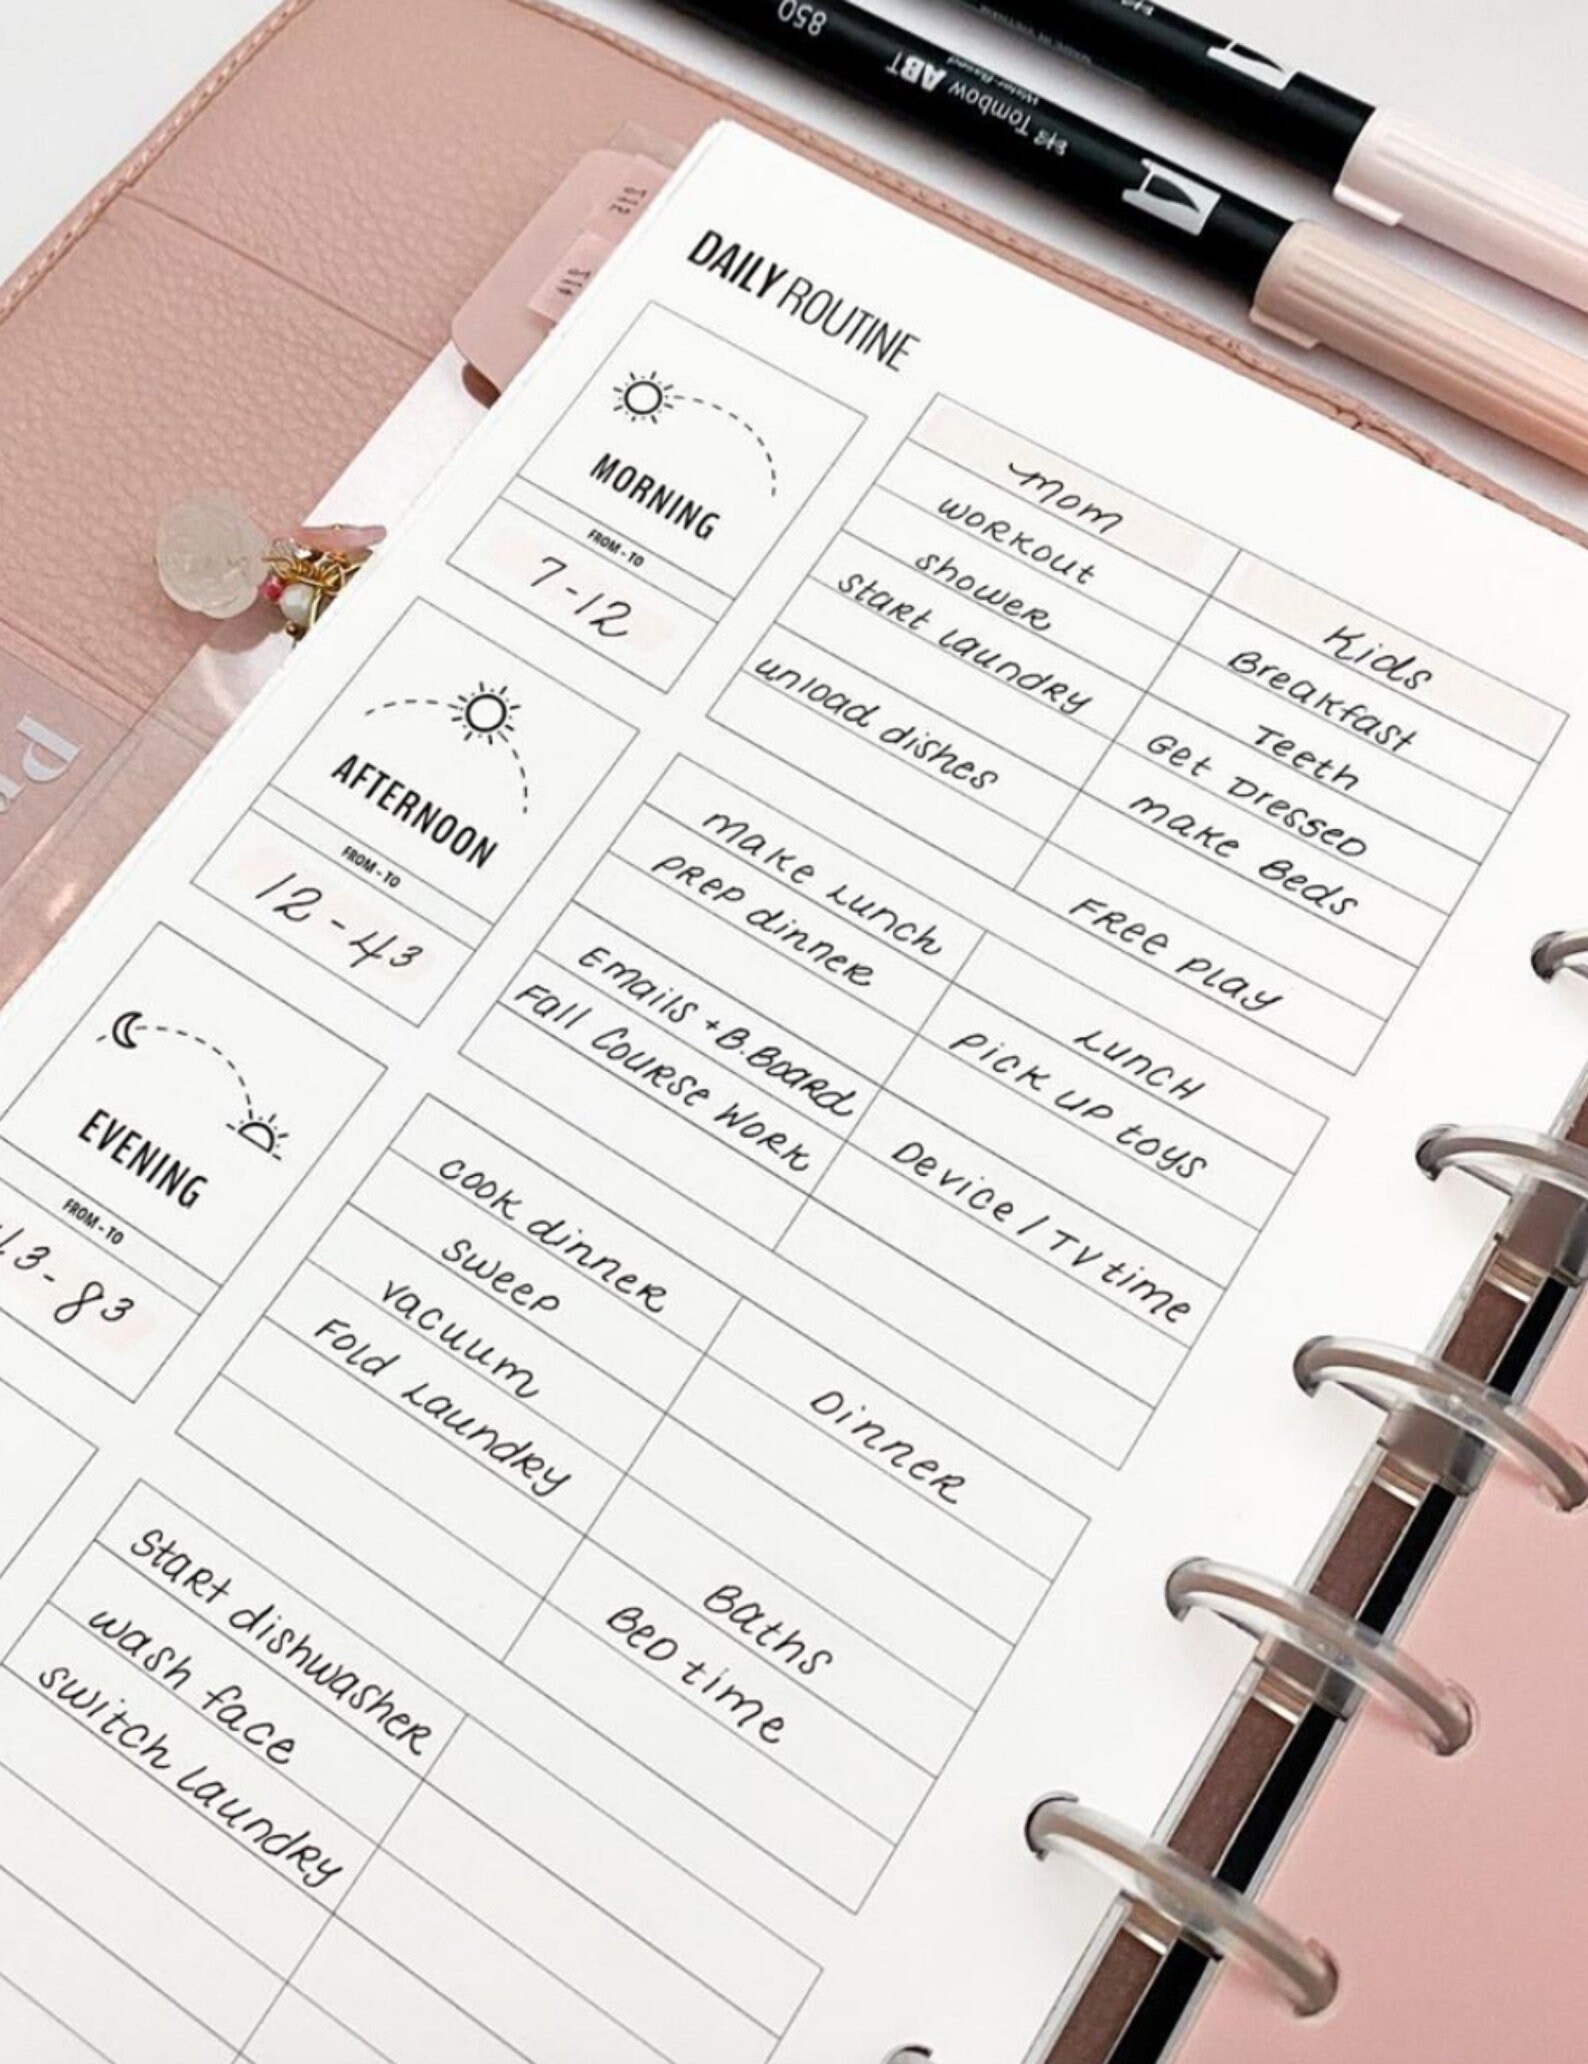 850
Tombow ABT
DAILY ROUTINE
MORNING
FROM - TO
7-12
mom
workout
shower
start laundry
unload dishes
Kids
Breakfast
Teeth
Get Dressed
make Beds
Free play
AFTERNOON
FROM - TO
12-4³
make lunch
prep dinner
Emails + B.Board
Fall Course Work
Lunch
pick up toys
Device / TV time
EVENING
FROM - TO
4³-8³
cook dinner
sweep
vacuum
Fold Laundry
Dinner
Baths
Bed time
Start dishwasher
wash face
switch laundry